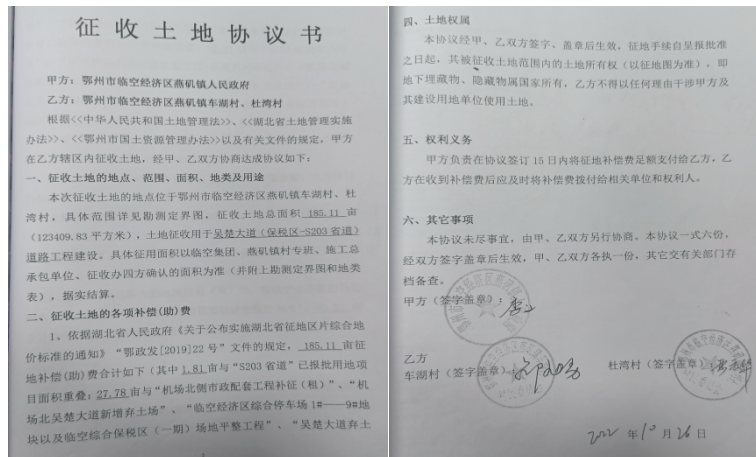 征收土地协议书
甲方：鄂州市临空经济区燕矶镇人民政府
乙方：鄂州市临空经济区燕矶镇车湖村、杜湾村
根据<<中华人民共和国土地管理法>>、<<湖北省土地管理实施
办法>>、<<鄂州市国土资源管理办法>>以及有关文件的规定，甲方
在乙方辖区内征收土地，经甲、乙双方协商达成协议如下：
一、征收土地的地点、范围、面积、地类及用途
本次征收土地的地点位于鄂州市临空经济区燕矶镇车湖村、杜
湾村，具体范围详见勘测定界图，征收土地总面积 185.11 亩
（123409.83 平方米），土地征收用于吴楚大道（保税区-S203 省道）
道路工程建设。具体征用面积以临空集团、燕矶镇村专班、施工总
承包单位、征收办四方确认的面积为准（并附上勘测定界图和地类
表），据实结算。
二、征收土地的各项补偿(助)费
1、依据湖北省人民政府《关于公布实施湖北省征地区片综合地
价标准的通知》“鄂政发[2019]22 号”文件的规定，185.11 亩征
地补偿(助)费合计如下（其中 1.81 亩与“S203 省道”已报批用地项
目面积重叠；27.78 亩与“机场北侧市政配套工程补征（租）”、“机
场北吴楚大道新增弃土场”、“临空经济区综合停车场 1#——9#地
块以及临空综合保税区（一期）场地平整工程”、“吴楚大道弃土
四、土地权属
本协议经甲、乙双方签字、盖章后生效，征地手续自呈报批准
之日起，其被征收土地范围内的土地所有权（以征地图为准），即
地下埋藏物、隐藏物属国家所有，乙方不得以任何理由干涉甲方及
其建设用地单位使用土地。
五、权利义务
甲方负责在协议签订 15 日内将征地补偿费足额支付给乙方，乙
方在收到补偿费后应及时将补偿费拨付给相关单位和权利人。
六、其它事项
本协议未尽事宜，由甲、乙双方另行协商。本协议一式六份，
经双方签字盖章后生效，甲、乙双方各执一份，其它交有关部门存
档备查。
甲方（签字盖章）：
乙方
车湖村（签字盖章） 杜湾村（签字盖章）
2022 年 10 月 26 日